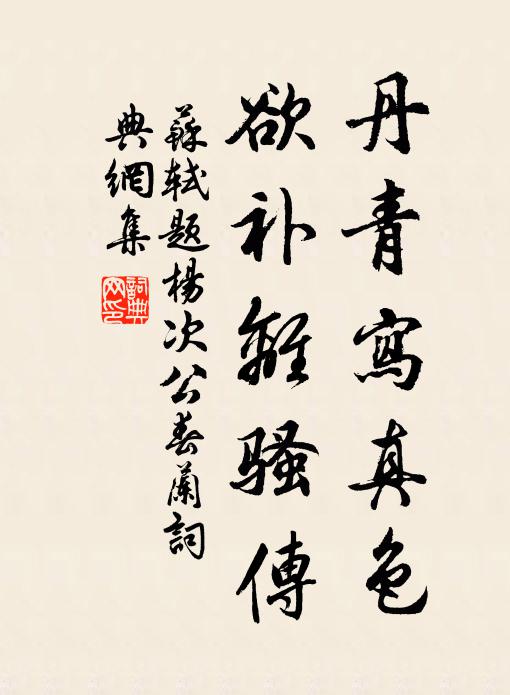 丹青寫真色
欲补離騷傳
蘇軾题楊次公春蘭詞
典網集
詞典
网印